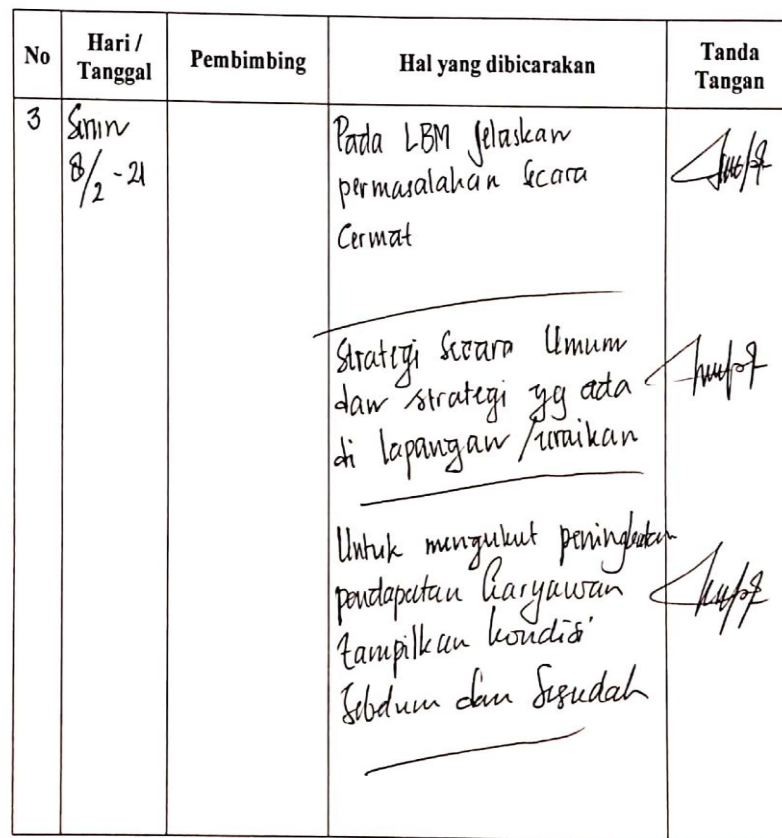 No
Hari /
Tanggal
Pembimbing
Hal yang dibicarakan
Tanda
Tangan
3
Senin
8/2 - 21
Pada LBM jelaskan
permasalahan secara
Cermat
Strategi secara Umum
dan strategi yg ada
di lapangan /uraikan
Untuk mengukut peningkatan
pendapatan karyawan
tampilkan kondisi
Sebelum dan Sesudah